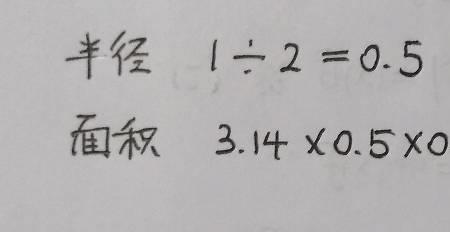 半径 1÷2=0.5
面积 3.14×0.5×0